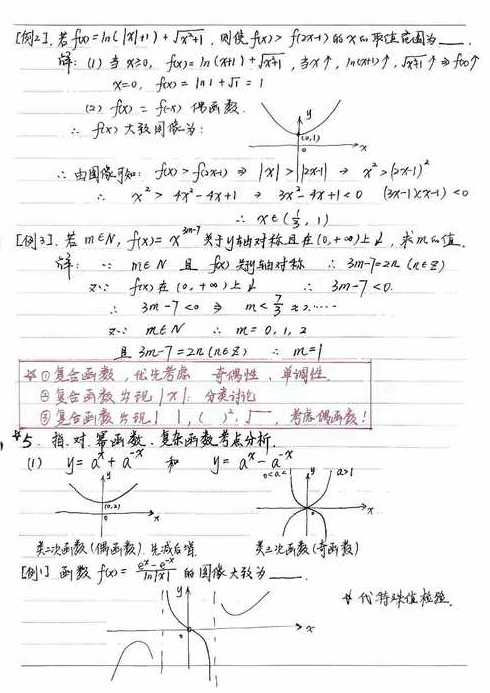 [例2]. 若 f(x) = ln(|x|+1) + √x²+1, 则使 f(x) > f(2x-1) 的 x 的取值范围为 ___.
解: (1) 当 x≥0, f(x) = ln(x+1) + √x²+1, 当 x↑, ln(x+1)↑, √x²+1↑ ⇒ f(x)↑
x=0, f(x) = ln1 + √1 = 1
(2) f(x) = f(-x) 偶函数.
∴ f(x) 大致图像为:
y
(0,1)
0
x
∴ 由图像可知: f(x) > f(2x-1) ⇒ |x| > |2x-1| → x² > (2x-1)²
∴ x² > 4x²-4x+1 → 3x²-4x+1<0 (3x-1)(x-1)<0
∴ x∈(1/3, 1)
[例3]. 若 m∈N, f(x) = x^(3m-7) 关于y轴对称且在(0,+∞)上↓, 求m的值.
解: ∵ m∈N 且 f(x) 关y轴对称 ∴ 3m-7=2n (n∈Z)
又∵ f(x) 在 (0,+∞) 上↓ ∴ 3m-7<0.
∴ 3m-7<0 ⇒ m<7/3 ≈2.……
又∵ m∈N ∴ m=0,1,2
且 3m-7=2n(n∈Z) ∴ m=1
☆ ① 复合函数, 优先考虑 奇偶性、单调性.
② 复合函数出现 |x|: 分类讨论
③ 复合函数出现 | |, ( )², √ , 考虑偶函数!
*5. 指、对、幂函数、复杂函数考点分析.
(1) y = a^x + a^-x 和 y = a^x - a^-x
y
(0,2)
x
a>1
y
0
x
类二次函数(偶函数). 先减后增.
类三次函数(奇函数)
[例1] 函数 f(x) = (e^x - e^-x)/ln|x| 的图像大致为 ___.
y
0
x
☆ 代特殊值检验.